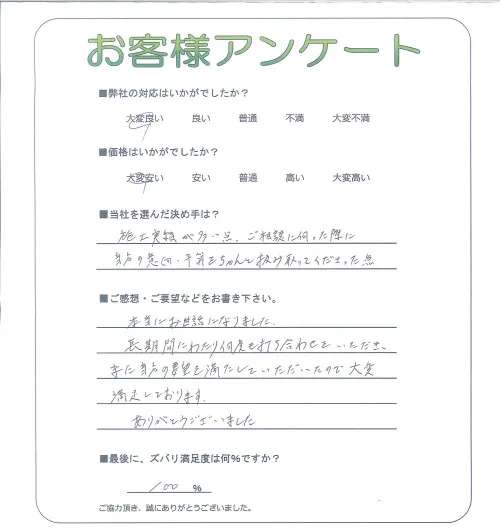 お客様アンケート
■弊社の対応はいかがでしたか？
大変良い 良い 普通 不満 大変不満
■価格はいかがでしたか？
大変安い 安い 普通 高い 大変高い
■当社を選んだ決め手は？
施工実績が多い点、ご相談に伺った際に
予算をちゃんと汲み取ってくださった点
■ご感想・ご要望などをお書き下さい。
本当にお世話になりました。
長期間にわたり何度も打ち合わせをいただき、
の要望を満たしていただいたので大変
満足しております。
ありがとうございました
■最後に、ズバリ満足度は何%ですか？
100 %
ご協力頂き、誠にありがとうございました。